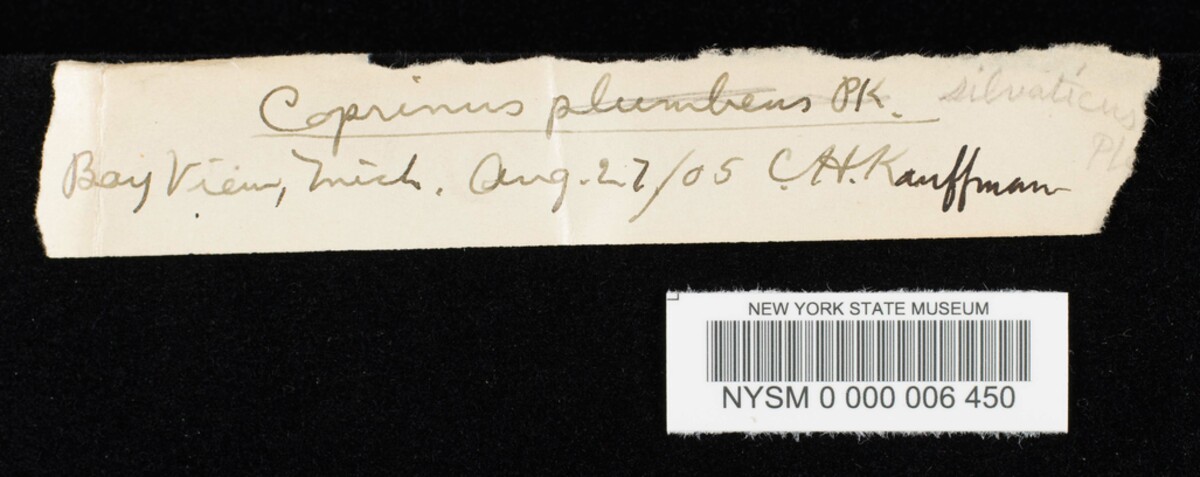 Coprinus plumbeus PK. silvaticus
Pk
Bay View, Mich. Aug. 27/05 C.H. Kauffman
NEW YORK STATE MUSEUM
NYSM 0 000 006 450